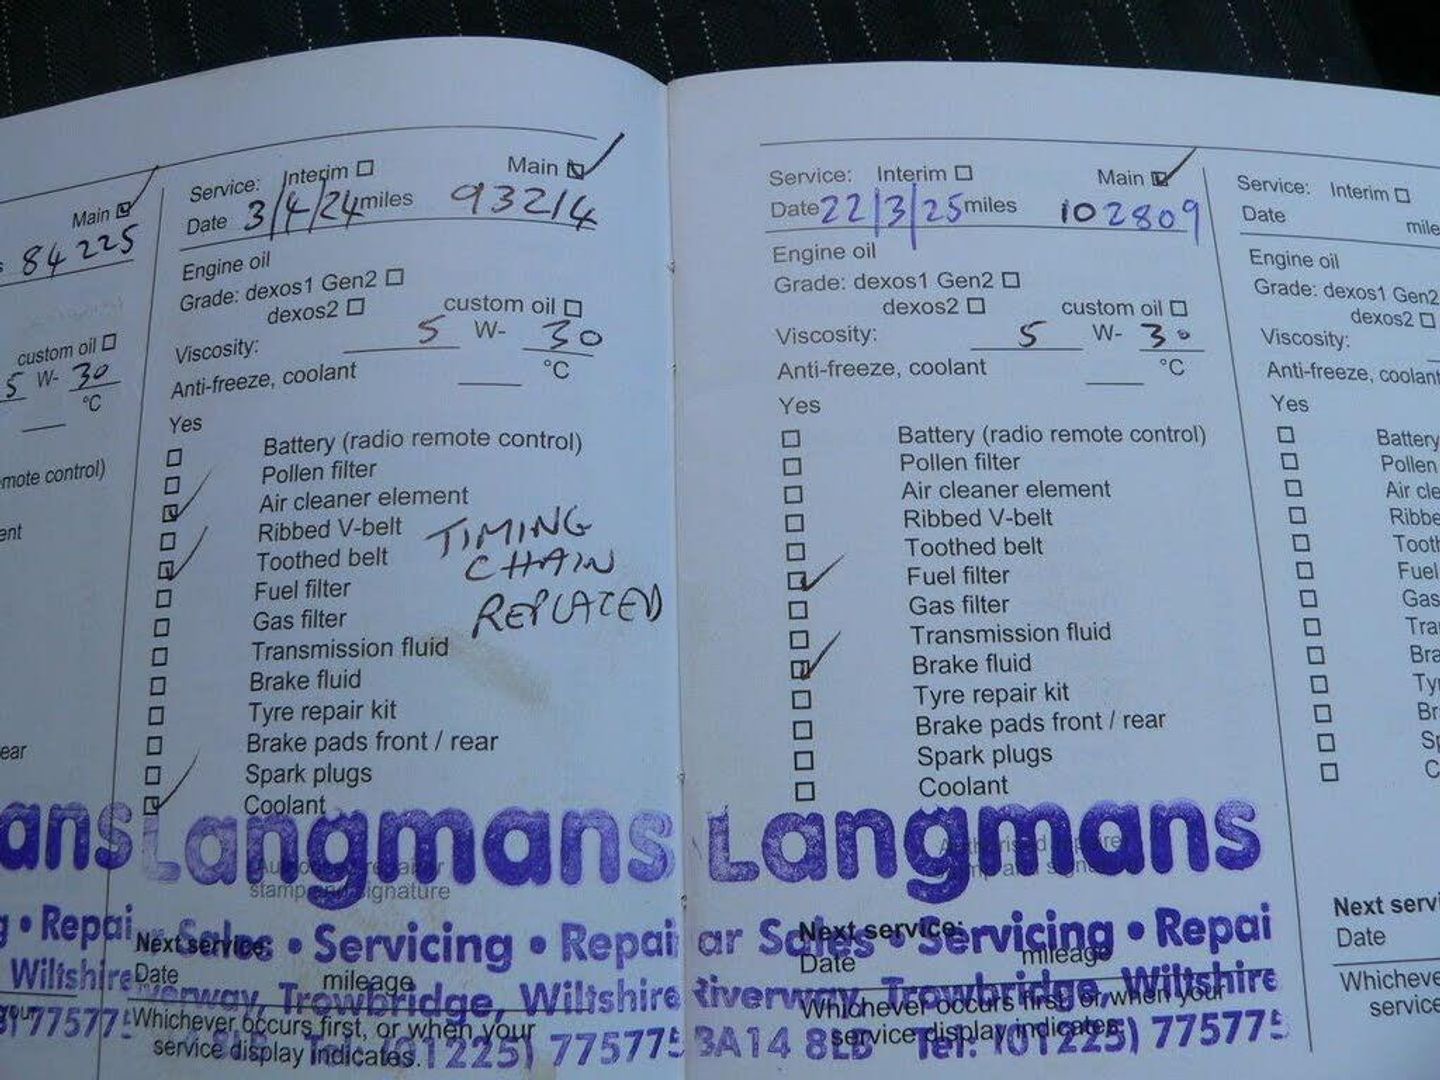 Main
84225
custom oil
5 W- 30
°C
mote control)
ear
ans
• Repai
Wiltshire
77577
Service: Interim Main
Date 3/4/24 miles 93214
Engine oil
Grade: dexos1 Gen2
dexos2 custom oil
Viscosity: 5 W- 30
Anti-freeze, coolant °C
Yes
Battery (radio remote control)
Pollen filter
Air cleaner element
Ribbed V-belt
Toothed belt
TIMING
CHAIN
REPLACED
Fuel filter
Gas filter
Transmission fluid
Brake fluid
Tyre repair kit
Brake pads front / rear
Spark plugs
Coolant
Langmans
stamp and signature
Sales • Servicing • Repai
Next service:
Date mileage
verway, Trowbridge, Wiltshire
Whichever occurs first, or when your
service display indicates.
Tel: (01225) 775775
Service: Interim Main
Date 22/3/25 miles 102809
Engine oil
Grade: dexos1 Gen2
dexos2 custom oil
Viscosity: 5 W- 30
Anti-freeze, coolant °C
Yes
Battery (radio remote control)
Pollen filter
Air cleaner element
Ribbed V-belt
Toothed belt
Fuel filter
Gas filter
Transmission fluid
Brake fluid
Tyre repair kit
Brake pads front / rear
Spark plugs
Coolant
Langmans
ar Sales • Servicing • Repai
Next service:
Date mileage
Riverway, Trowbridge, Wiltshire
Whichever occurs first, or when your
service display indicates.
BA14 8LB Tel: (01225) 77577
Service: Interim
Date mile
Engine oil
Grade: dexos1 Gen2
dexos2
Viscosity:
Anti-freeze, coolant
Yes
Battery
Pollen
Air cle
Ribbe
Tooth
Fuel
Gas
Tra
Bra
Ty
Br
Sp
C
Next servi
Date
Whicheve
service